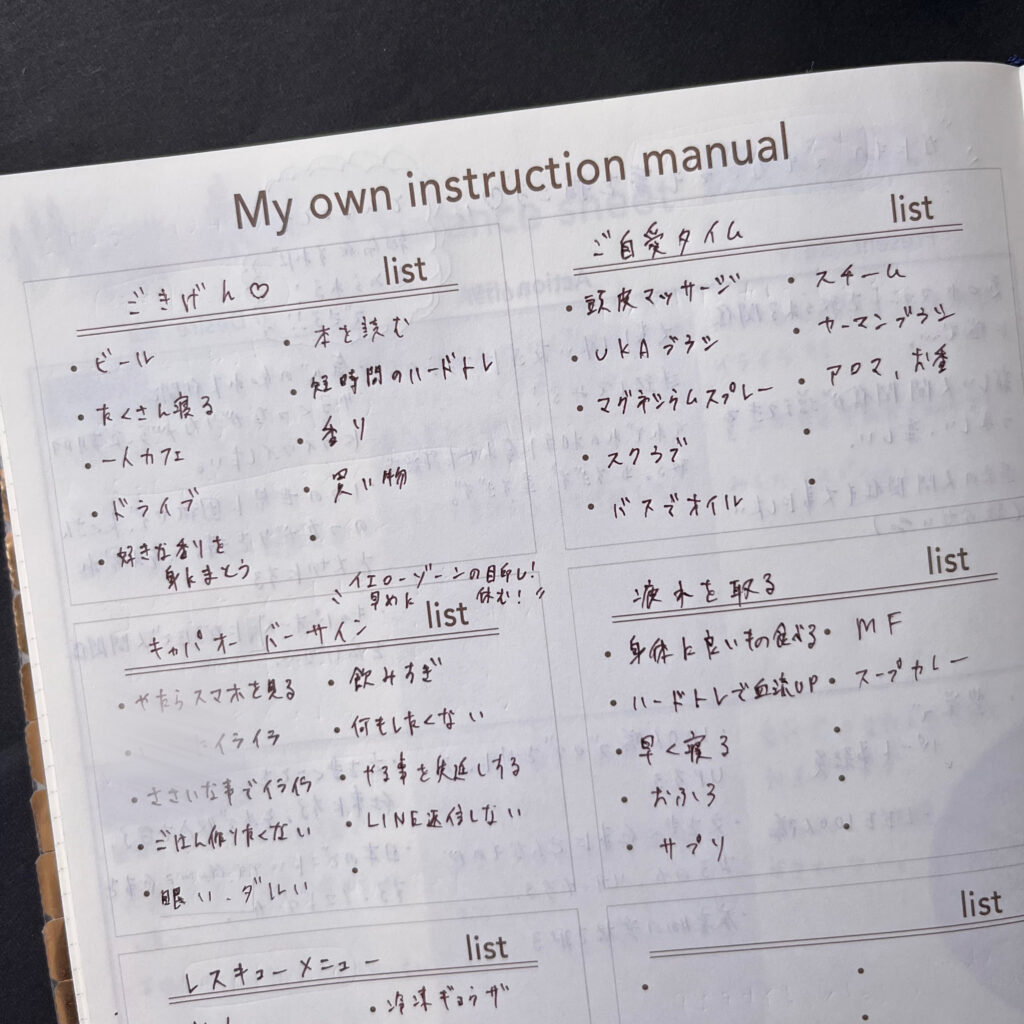 My own instruction manual
ごきげん♡ list
・ビール
・たくさん寝る
・一人カフェ
・ドライブ
・好きな香りを
身にまとう
・本を読む
・短時間のハードトレ
・香り
・買い物
・
ご自愛タイム list
・頭皮マッサージ
・UKAブラシ
・マグネシウムスプレー
・スクラブ
・バスでオイル
・スチーム
・サーマンブラシ
・アロマ、お香
・
・
〃イエローゾーンの目印し!
早めに 休む!〃
キャパオーバーサイン list
・やたらスマホを見る
イライラ
・ささいな事でイライラ
・ごはん作りたくない
・眠い、ダルい
・飲みすぎ
・何もしたくない
・やる事を先延しする
・LINE返信しない
・
疲れを取る list
・身体に良いもの食べる
・ハードトレで血流UP
・早く寝る
・おふろ
・サプリ
・MF
・スープカレー
・
・
・
レスキューメニュー list
・冷凍ギョウザ
list